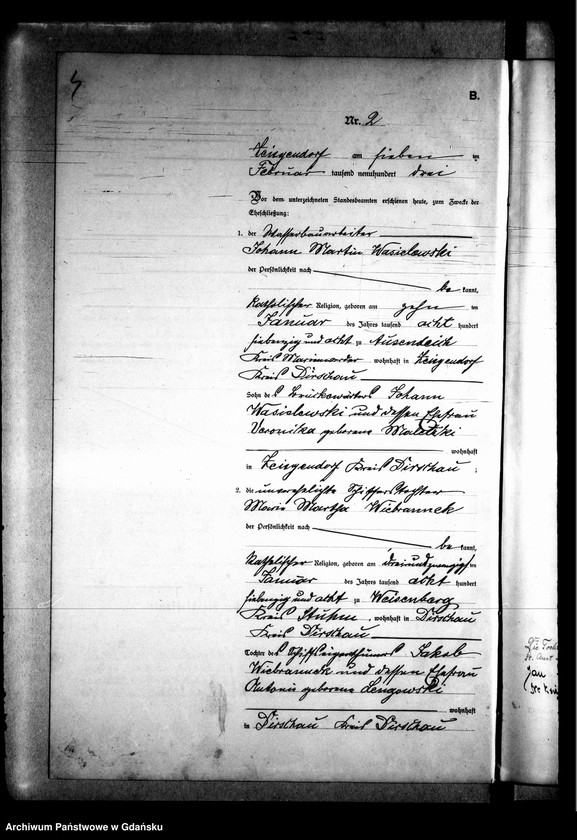 4
B.
Nr. 2
Zeisgendorf am sieben ten
Februar tausend neunhundert drei
Vor dem unterzeichneten Standesbeamten erschienen heute, zum Zwecke der
Eheschließung:
1. der Wasserbauarbeiter
Johann Martin Wasielewski
der Persönlichkeit nach
be kannt,
katholischer Religion, geboren am zehn ten
Januar des Jahres tausend acht hundert
siebenzig und acht zu Aussendeich
Kreis Marienwerder, wohnhaft in Zeisgendorf
Kreis Dirschau
Sohn des Brückenwärters Johann
Wasielewski und dessen Ehefrau
Veronika geborene
wohnhaft
in Zeisgendorf Kreis Dirschau;
2. die unverehelichte Schifferstochter
Marie Martha Wiebranneck
der Persönlichkeit nach
be kannt,
katholischer Religion, geboren am dreiundzwanzigsten
Januar des Jahres tausend acht hundert
siebenzig und acht zu Weisenberg
Kreis Stuhm, wohnhaft in Dirschau
Kreis Dirschau
Tochter des Schiffseigenthümers Jakob
Wiebranneck und dessen Ehefrau
Antonie geborene Lengowski
wohnhaft
in Dirschau Kreis Dirschau
Archiwum Państwowe w Gdańsku